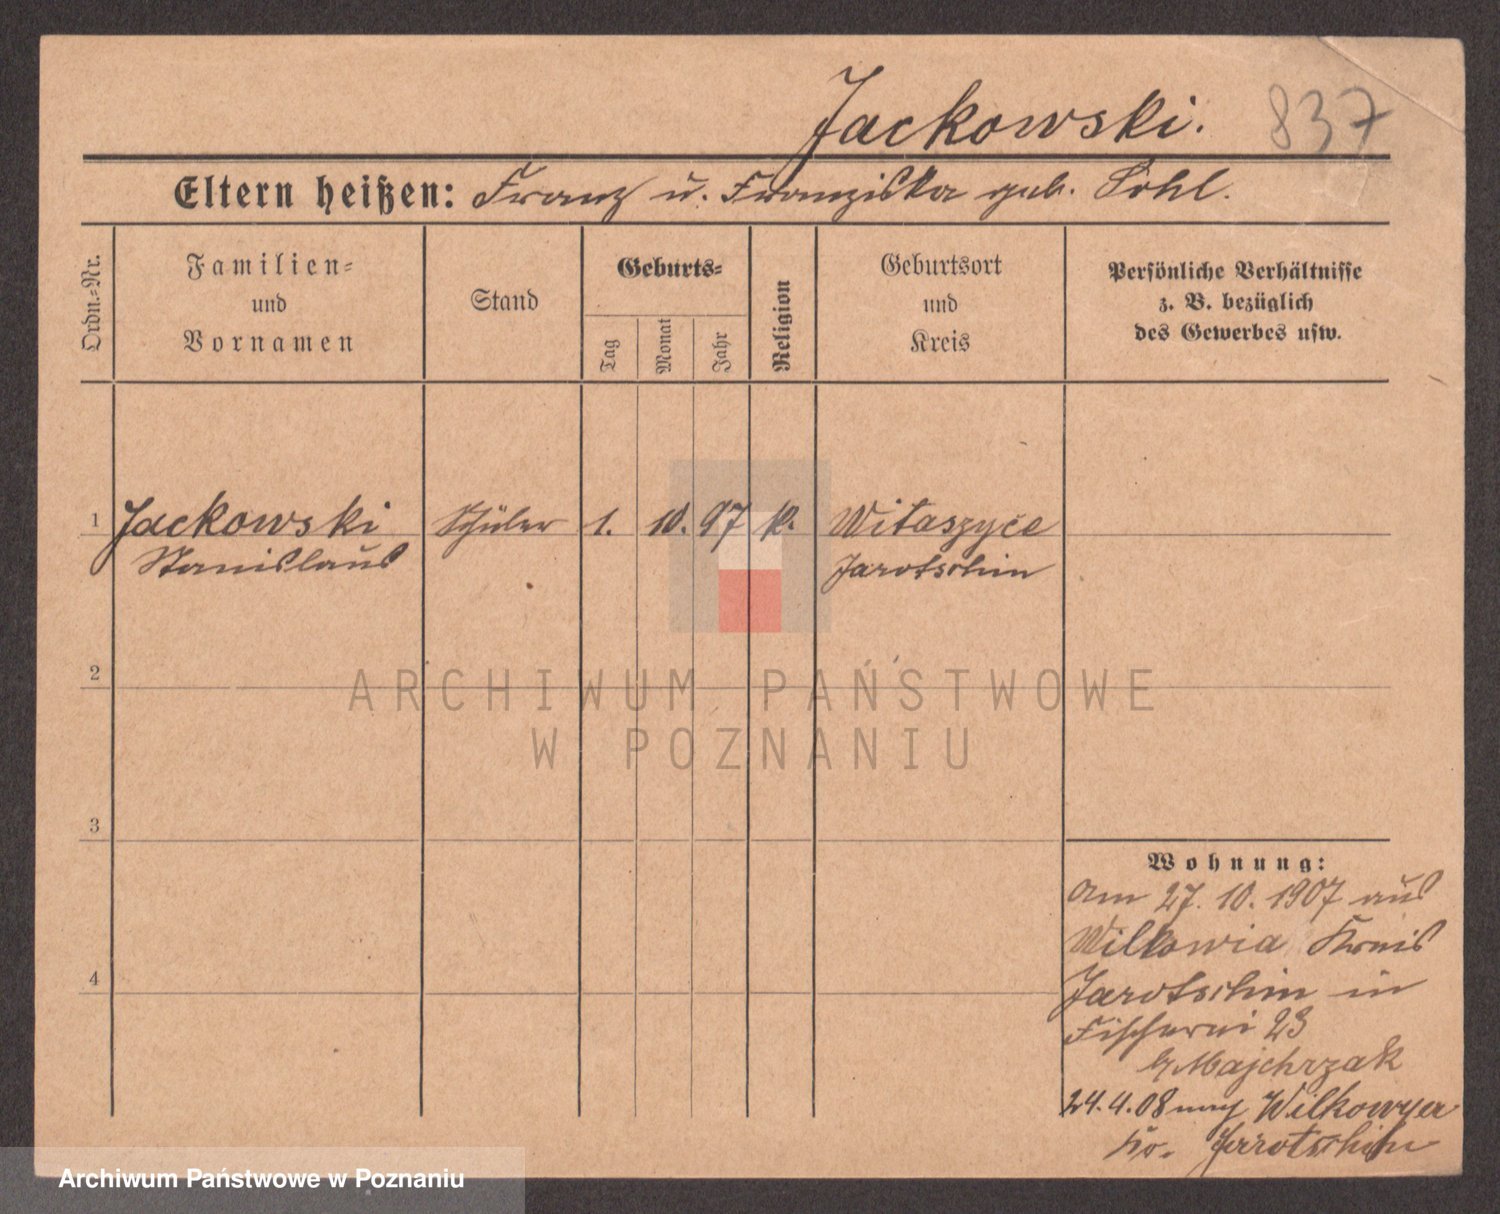 Jackowski. 837
Eltern heißen: Franz u. Franziska geb. Sohl.
Ordn.-Nr.
Familien-
und
Vornamen
Stand
Geburts-
Tag
Monat
Jahr
Religion
Geburtsort
und
Kreis
Persönliche Verhältnisse
z. B. bezüglich
des Gewerbes usw.
1 Jackowski Schüler 1. 10. 97 k. Witaszyce
Stanislaus Jarotschin
2
ARCHIWUM PAŃSTWOWE
W POZNANIU
3
4
Wohnung:
Am 27. 10. 1907 aus
Wilkowia Kreis
Jarotschin in
Fischerei 23
b/ Majchrzak
24.4.08 nach Wilkowyea
Kr. Jarotschin
Archiwum Państwowe w Poznaniu